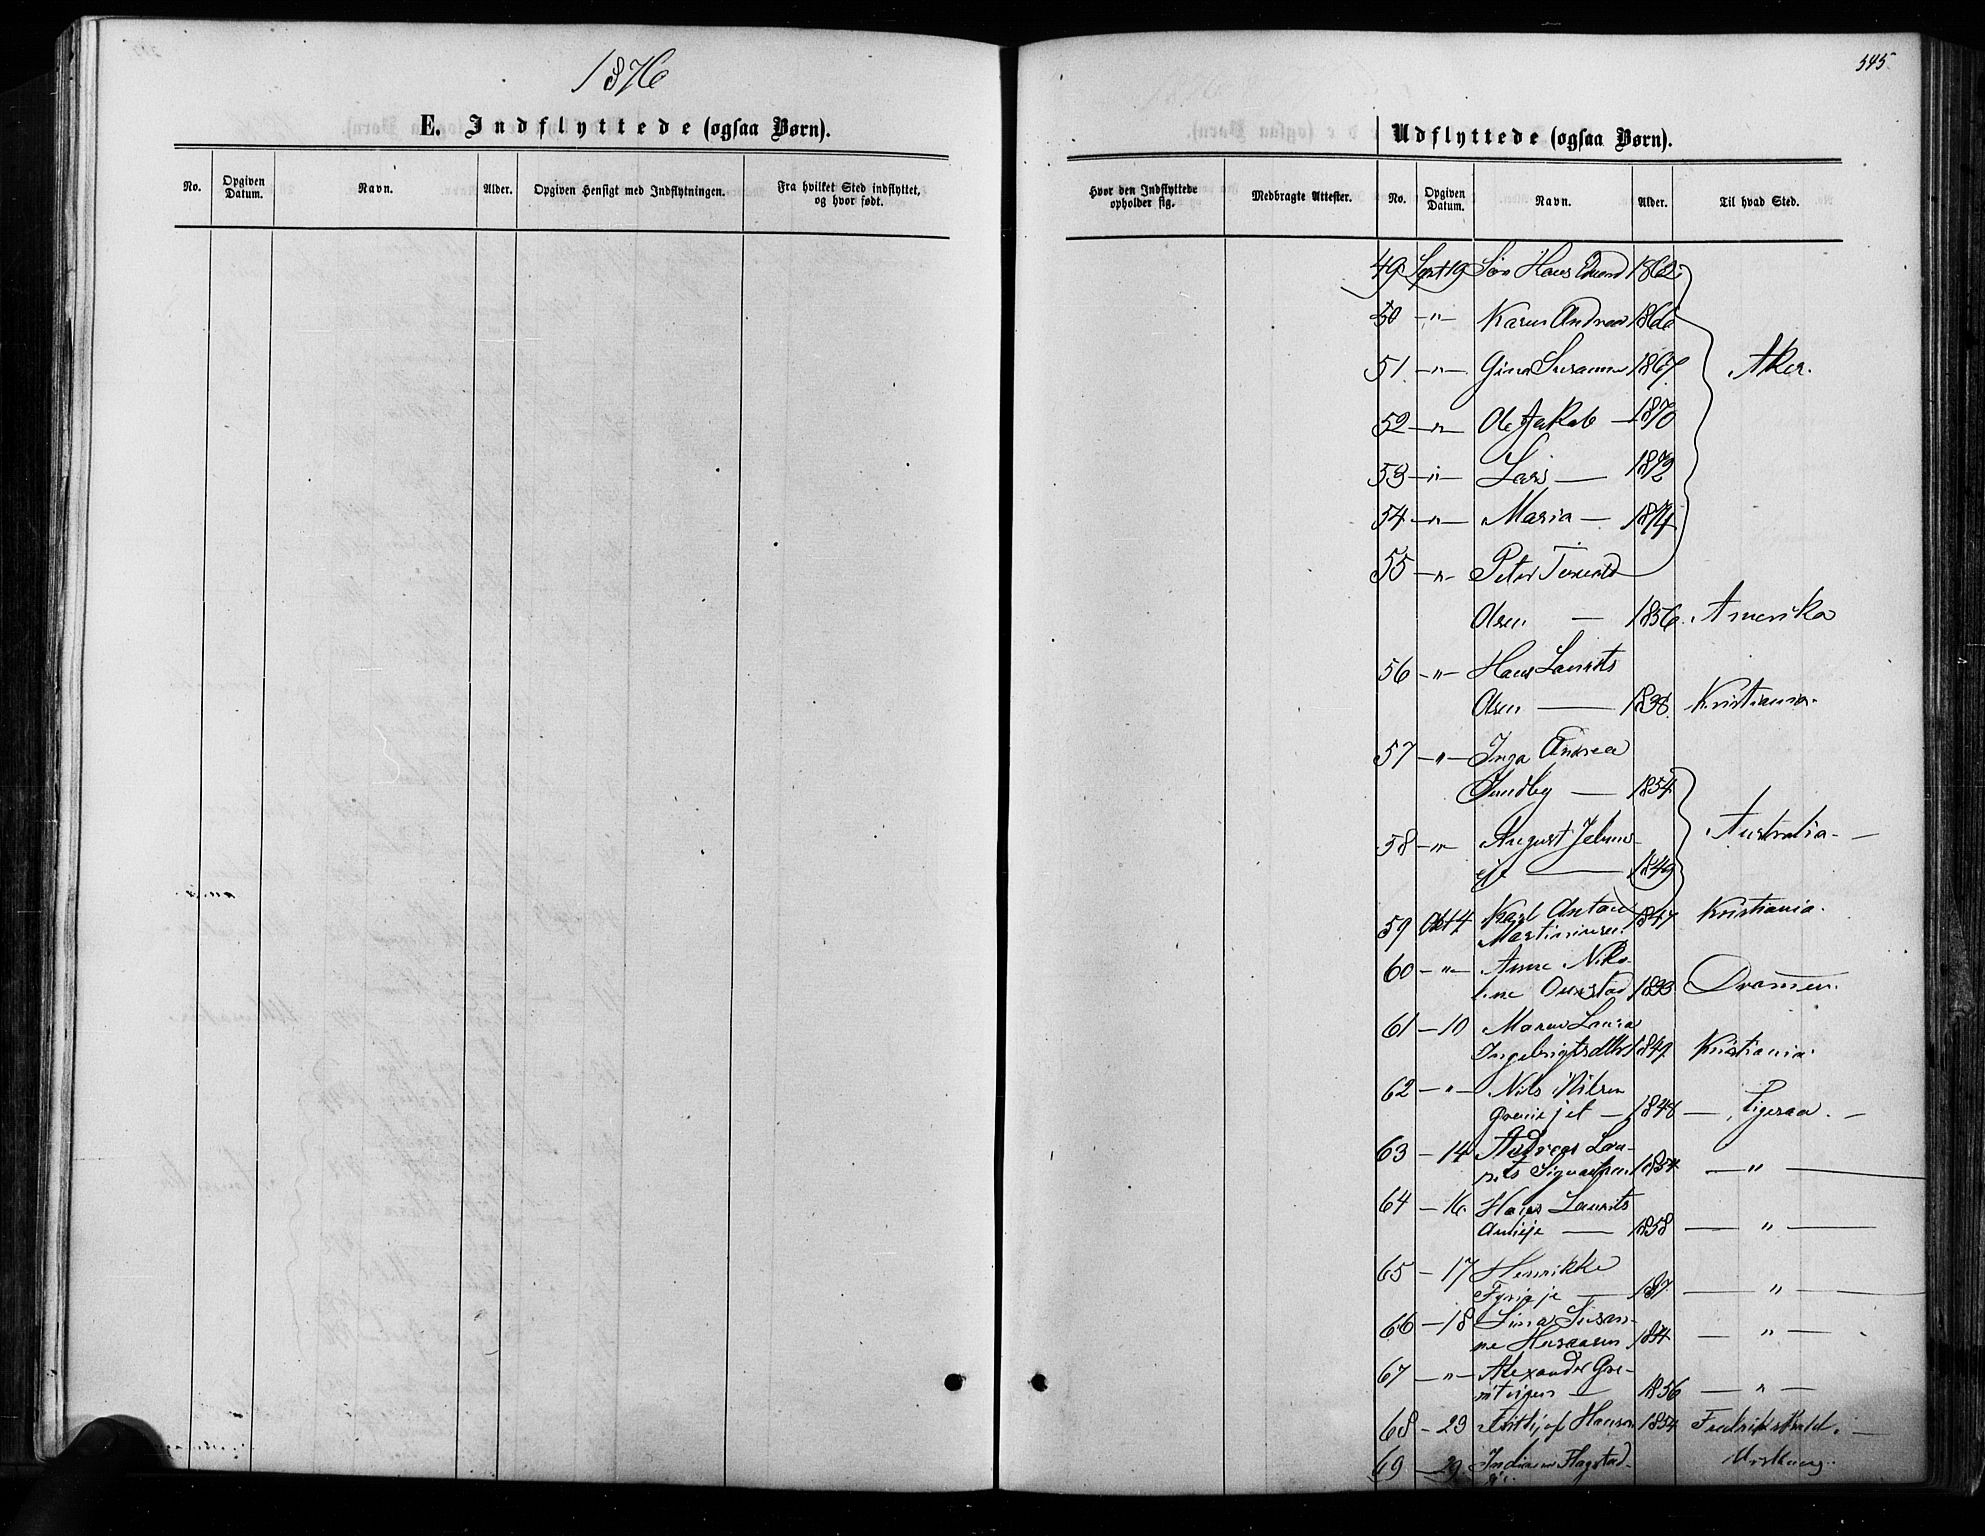 1876
E. Indflyttede (ogsaa Børn).
No.
Opgiven Datum.
Navn.
Alder.
Opgiven Hensigt med Indflytningen.
Fra hvilket Sted indflyttet, og hvor født.
545.
Udflyttede (ogsaa Børn).
Hvor den Indflyttede opholder sig.
Medbragte Attester.
No.
Opgiven Datum.
Navn.
Alder.
Til hvad Sted.
49 Sept 19 Søn Hans 1862
50 -"- Karen Andrea 1866
51 -"- Gina Susanne 1867 Aker.
52 -"- Ole Jakob - 1870
53 -"- Lars - 1872
54 -"- Maria - 1874
55 -"- Peter
Olsen - 1856. Amerika
56 -"- Hans Laurits
Olsen - 1838. Kristiania.
57 -"- Inga Andrea
Sundby - 1854
58 -"- August
1849 Australia. -
59 Okt 4 Karl Anton 1847 Kristiania.
Martinusen
60 -"- Anne Niko-
line 1833 Dramen.
61 - 10 Maren Laura
Ingebrigtsdtter 1849 Kristiania.
62 -"- Nils Nilsen
1848 -
63 - 14 Andreas Lau-
rits 1854 - " -
64 - 16 Hans Laurits
- 1858 - " -
65 - 17 Henrikke
- " -
66 - 18 Lina Susan-
ne - " -
67 -"- Alexander
- 1856 - " -
68 - 23 Hansen 1854 Fredrikshald. -
69 - 29 Flagstad